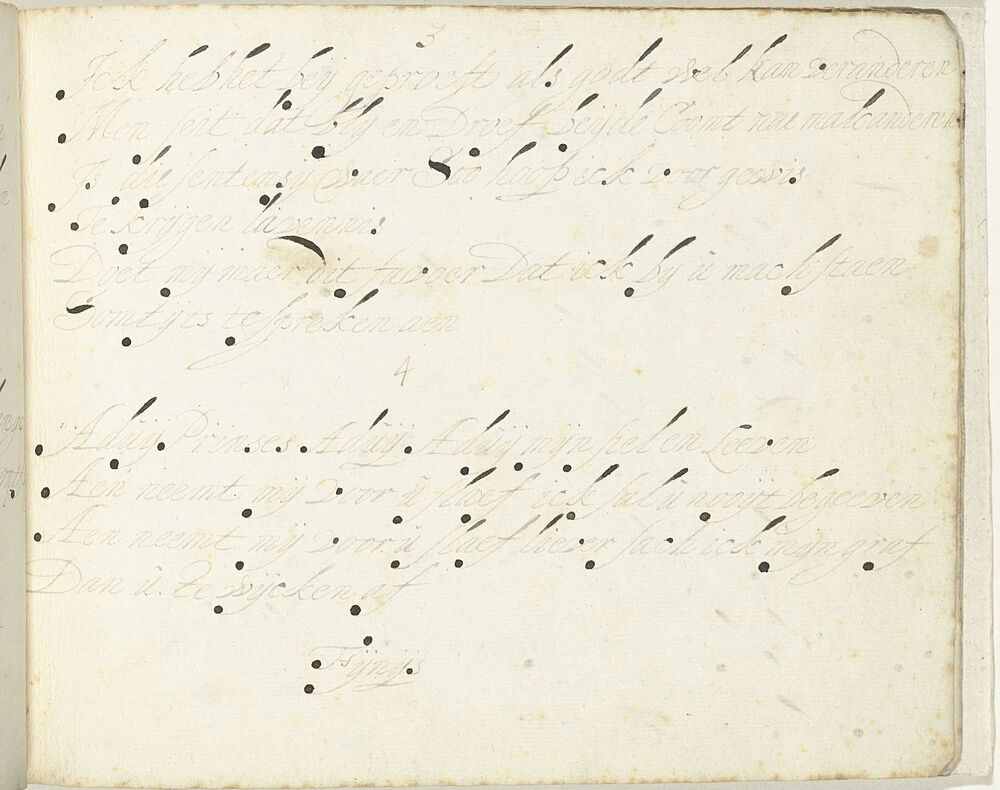 3
Ick heb het beij geproeft als godt wel kan veranderen
Men seit dat bly en Droef beijde Comt nae malcanderen
Is die sentensij waer Soo hoop ick voor gewis
Te krijgen lavennis
Doet mij maer dit favoer Dat ick bij û mach staen
Somtyts te spreken aen
4
Adûij Prinses Adûij Adûij mijn siel en Leeven
Aen neemt mij voor û slaef ick sal û nooijt begeeven
Aen neemt mij voor û slaef liever sach ick mijn graf
Dan û. Te wijcken af
Fijnijs